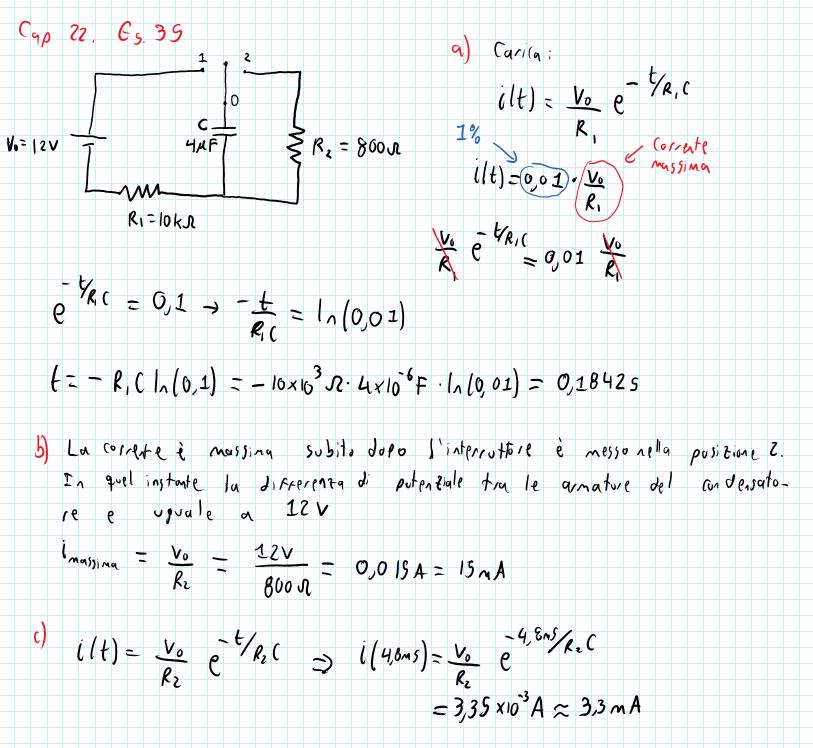 Cap 22. Es. 35
1 2
0
C
4µF
V₀ = 12V
R₂ = 800Ω
R₁ = 10kΩ
a) Carica:
i(t) = V₀/R₁ e^(-t/R₁C)
1%
Corrente massima
i(t) = 0,01 · V₀/R₁
V₀/R₁ e^(-t/R₁C) = 0,01 V₀/R₁
e^(-t/R₁C) = 0,1 → -t/R₁C = ln(0,01)
t = - R₁C ln(0,1) = -10×10³ Ω · 4×10⁻⁶ F · ln(0,01) = 0,1842 s
b) La corrente è massima subito dopo l'interruttore è messo nella posizione 2.
In quel instante la differenza di potenziale tra le armature del condensato-
re e uguale a 12 V
i massima = V₀/R₂ = 12V/800Ω = 0,015A = 15mA
c) i(t) = V₀/R₂ e^(-t/R₂C) ⇒ i(4,8ms) = V₀/R₂ e^(-4,8ms/R₂C)
= 3,35 ×10⁻³ A ≈ 3,3 mA